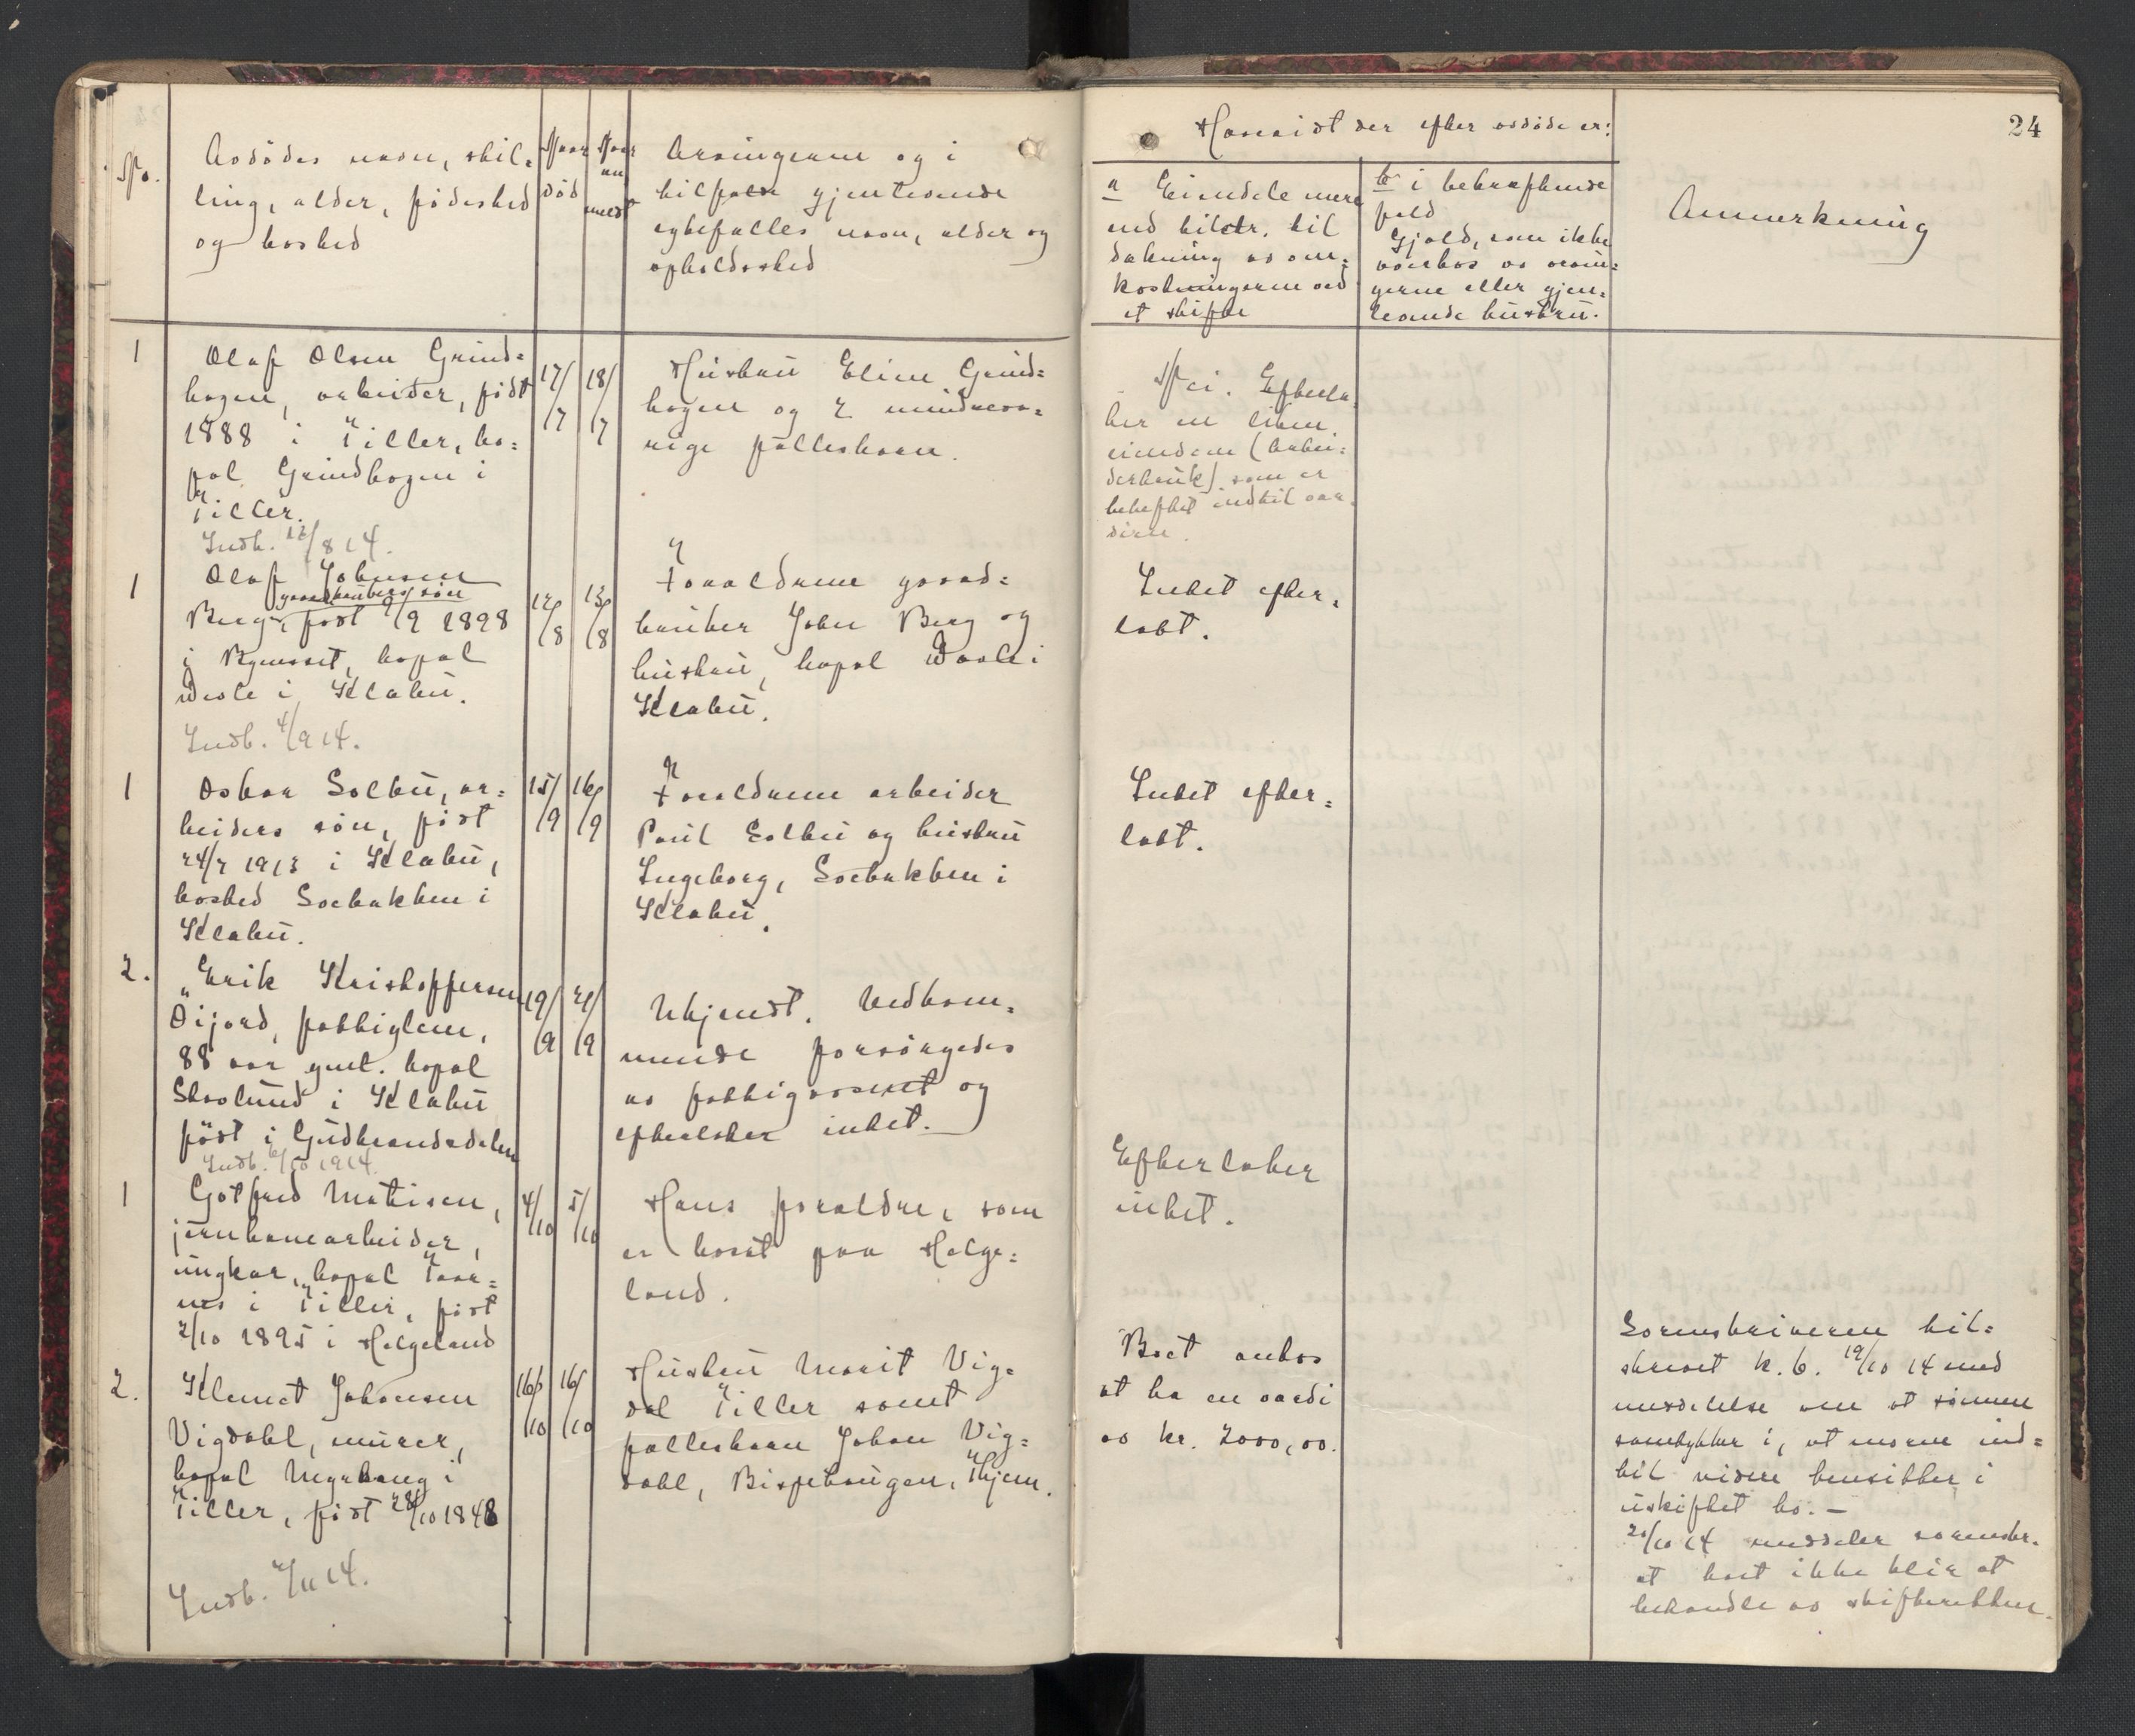 24
No.
Avdødes navn, stil-
ling, alder, fødested
og bosted
Naar
død
Naar
an
meldt
Arvingerne og i
tilfælde gjenlevende
egtefælles navn, alder og
opholdssted
Hvorvidt der efter avdøde er:
a Eiendele mere
end tilstr. til
dækning av om-
kostningerne ved
et skifte
b i bekræftende
fald
Gjæld, som ikke
overtas av arvin-
gerne eller gjen-
levende hustru.
Anmerkning
1
Olaf Olsen Grind-
hagen, arbeider, født
1888 i Tiller, bo-
pæl Grindhagen i
Tiller.
Indb. 12/8 14.
17/
7
18/
7
Hustru Eline Grind-
hagen og 2 mindreaa-
rige fællesbarn.
Nei. Efterla-
ter en liten
eiendom (arbei-
derbruk) som er
beheftet indtil vær-
dien.
1
Olaf Johnsen
gaardbrukers søn
Berg, født 9/9 1898
i Bynesset, bopæl
i Klæbu.
Indb. 4/9 14.
12/
8
13/
8
Forældrene gaard-
bruker John Berg og
hustru, bopæl
Klæbu.
Intet efter-
latt.
1
Oskar Solbu, ar-
beiders søn, født
24/7 1913 i Klæbu,
bosted Sorbakken i
Klæbu.
15/
9
16/
9
Forældrene arbeider
Paul Solbu og hustru
Ingeborg, Sorbakken i
Klæbu.
Intet efter-
latt.
2.
Erik Kristoffersen
Øijord, fattiglem,
88 aar gml. bopæl
Skoslund i Klæbu
født i Gudbrandsdalen
Indb. 6/10 1914.
19/
9
21/
9
Ukjendt. Vedkom-
mende forsørgedes
av fattigvæsenet og
efterlater intet.
1
Gotfred Matisen,
jernbanearbeider,
ungkar, bopæl Tor-
nes i Tiller, født
2/10 1895 i Helgeland
4/
10
5/
10
Hans forældre, som
er bosat paa Helge-
land.
Efterlater
intet.
2.
Klemet Johansen
Vigdahl, murer,
bopæl Myrhaug i
Tiller, født 28/10 1848
Indb. 2/11 14.
16/
10
16/
10
Hustru Marit Vig-
dal Tiller samt
fællesbarn Johan Vig-
dahl, Bispehaugen, Thjem.
Boet antas
at ha en værdi
av kr. 2000,00.
Sorenskriveren til-
skrevet h. b. 19/10 14 med
meddelelse om at sønnen
samtykker i, at moren ind-
til videre hensitter i
uskiftet bo. –
20/10 14 meddeler sorenskr.
at boet ikke blir at
behandle av skifteretten.